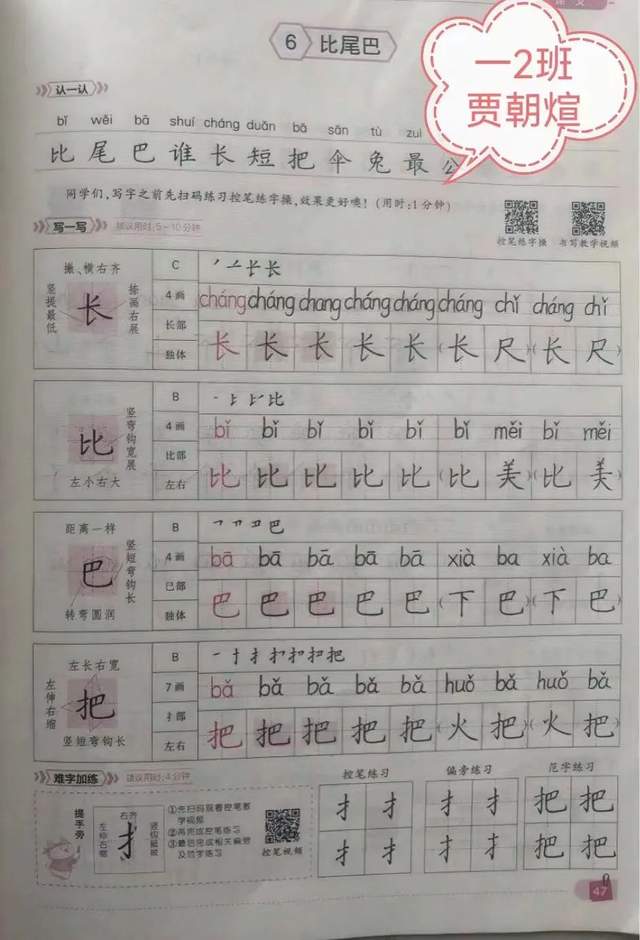 课文
6 比尾巴
一2班
贾朝煊
认一认
bǐ wěi bā shuí cháng duǎn bǎ sǎn tù zuì
比 尾 巴 谁 长 短 把 伞 兔 最 公
同学们,写字之前先扫码练习控笔练字操,效果更好噢!(用时:1分钟)
控笔练字操 书写教学视频
写一写 建议用时:5~10分钟
撇、横右齐
竖提最低
捺画右展
长
C
4画
长部
独体
cháng cháng chang cháng cháng cháng chǐ cháng chǐ
长 长 长 长 长(长 尺)(长 尺)
竖弯钩宽展
左小右大
比
B
4画
比部
左右
bǐ bǐ bǐ bǐ bǐ bǐ měi bǐ měi
比 比 比 比 比(比 美)(比 美)
距离一样
竖短弯钩长
转弯圆润
巴
B
4画
巳部
独体
bā bā bā bā bā xià ba xià ba
巴 巴 巴 巴 巴(下 巴)(下 巴)
左长右宽
左伸右缩
竖短弯钩长
把
B
7画
扌部
左右
bǎ bǎ bǎ bǎ bǎ huǒ bǎ huǒ bǎ
把 把 把 把 把(火 把)(火 把)
难字加练 建议用时:4分钟
提手旁
右齐
左伸右缩
扌
①先扫码观看控笔教学视频
②再完成控笔练习
③最后完成相关偏旁及范字练习
控笔视频
控笔练习 偏旁练习 范字练习
扌 扌 扌 扌 把 把
扌 扌 扌 扌 把 把
47